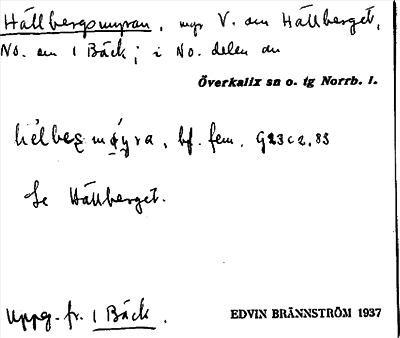 Hällbergsmyran, myr V. om Hällberget,
No. om 1 Bäck; i No. delen av
Överkalix sn o. tg Norrb. l.
bf. fem. G23c2.83
Se Hällberget.
Uppg. fr. 1 Bäck.
EDVIN BRÄNNSTRÖM 1937